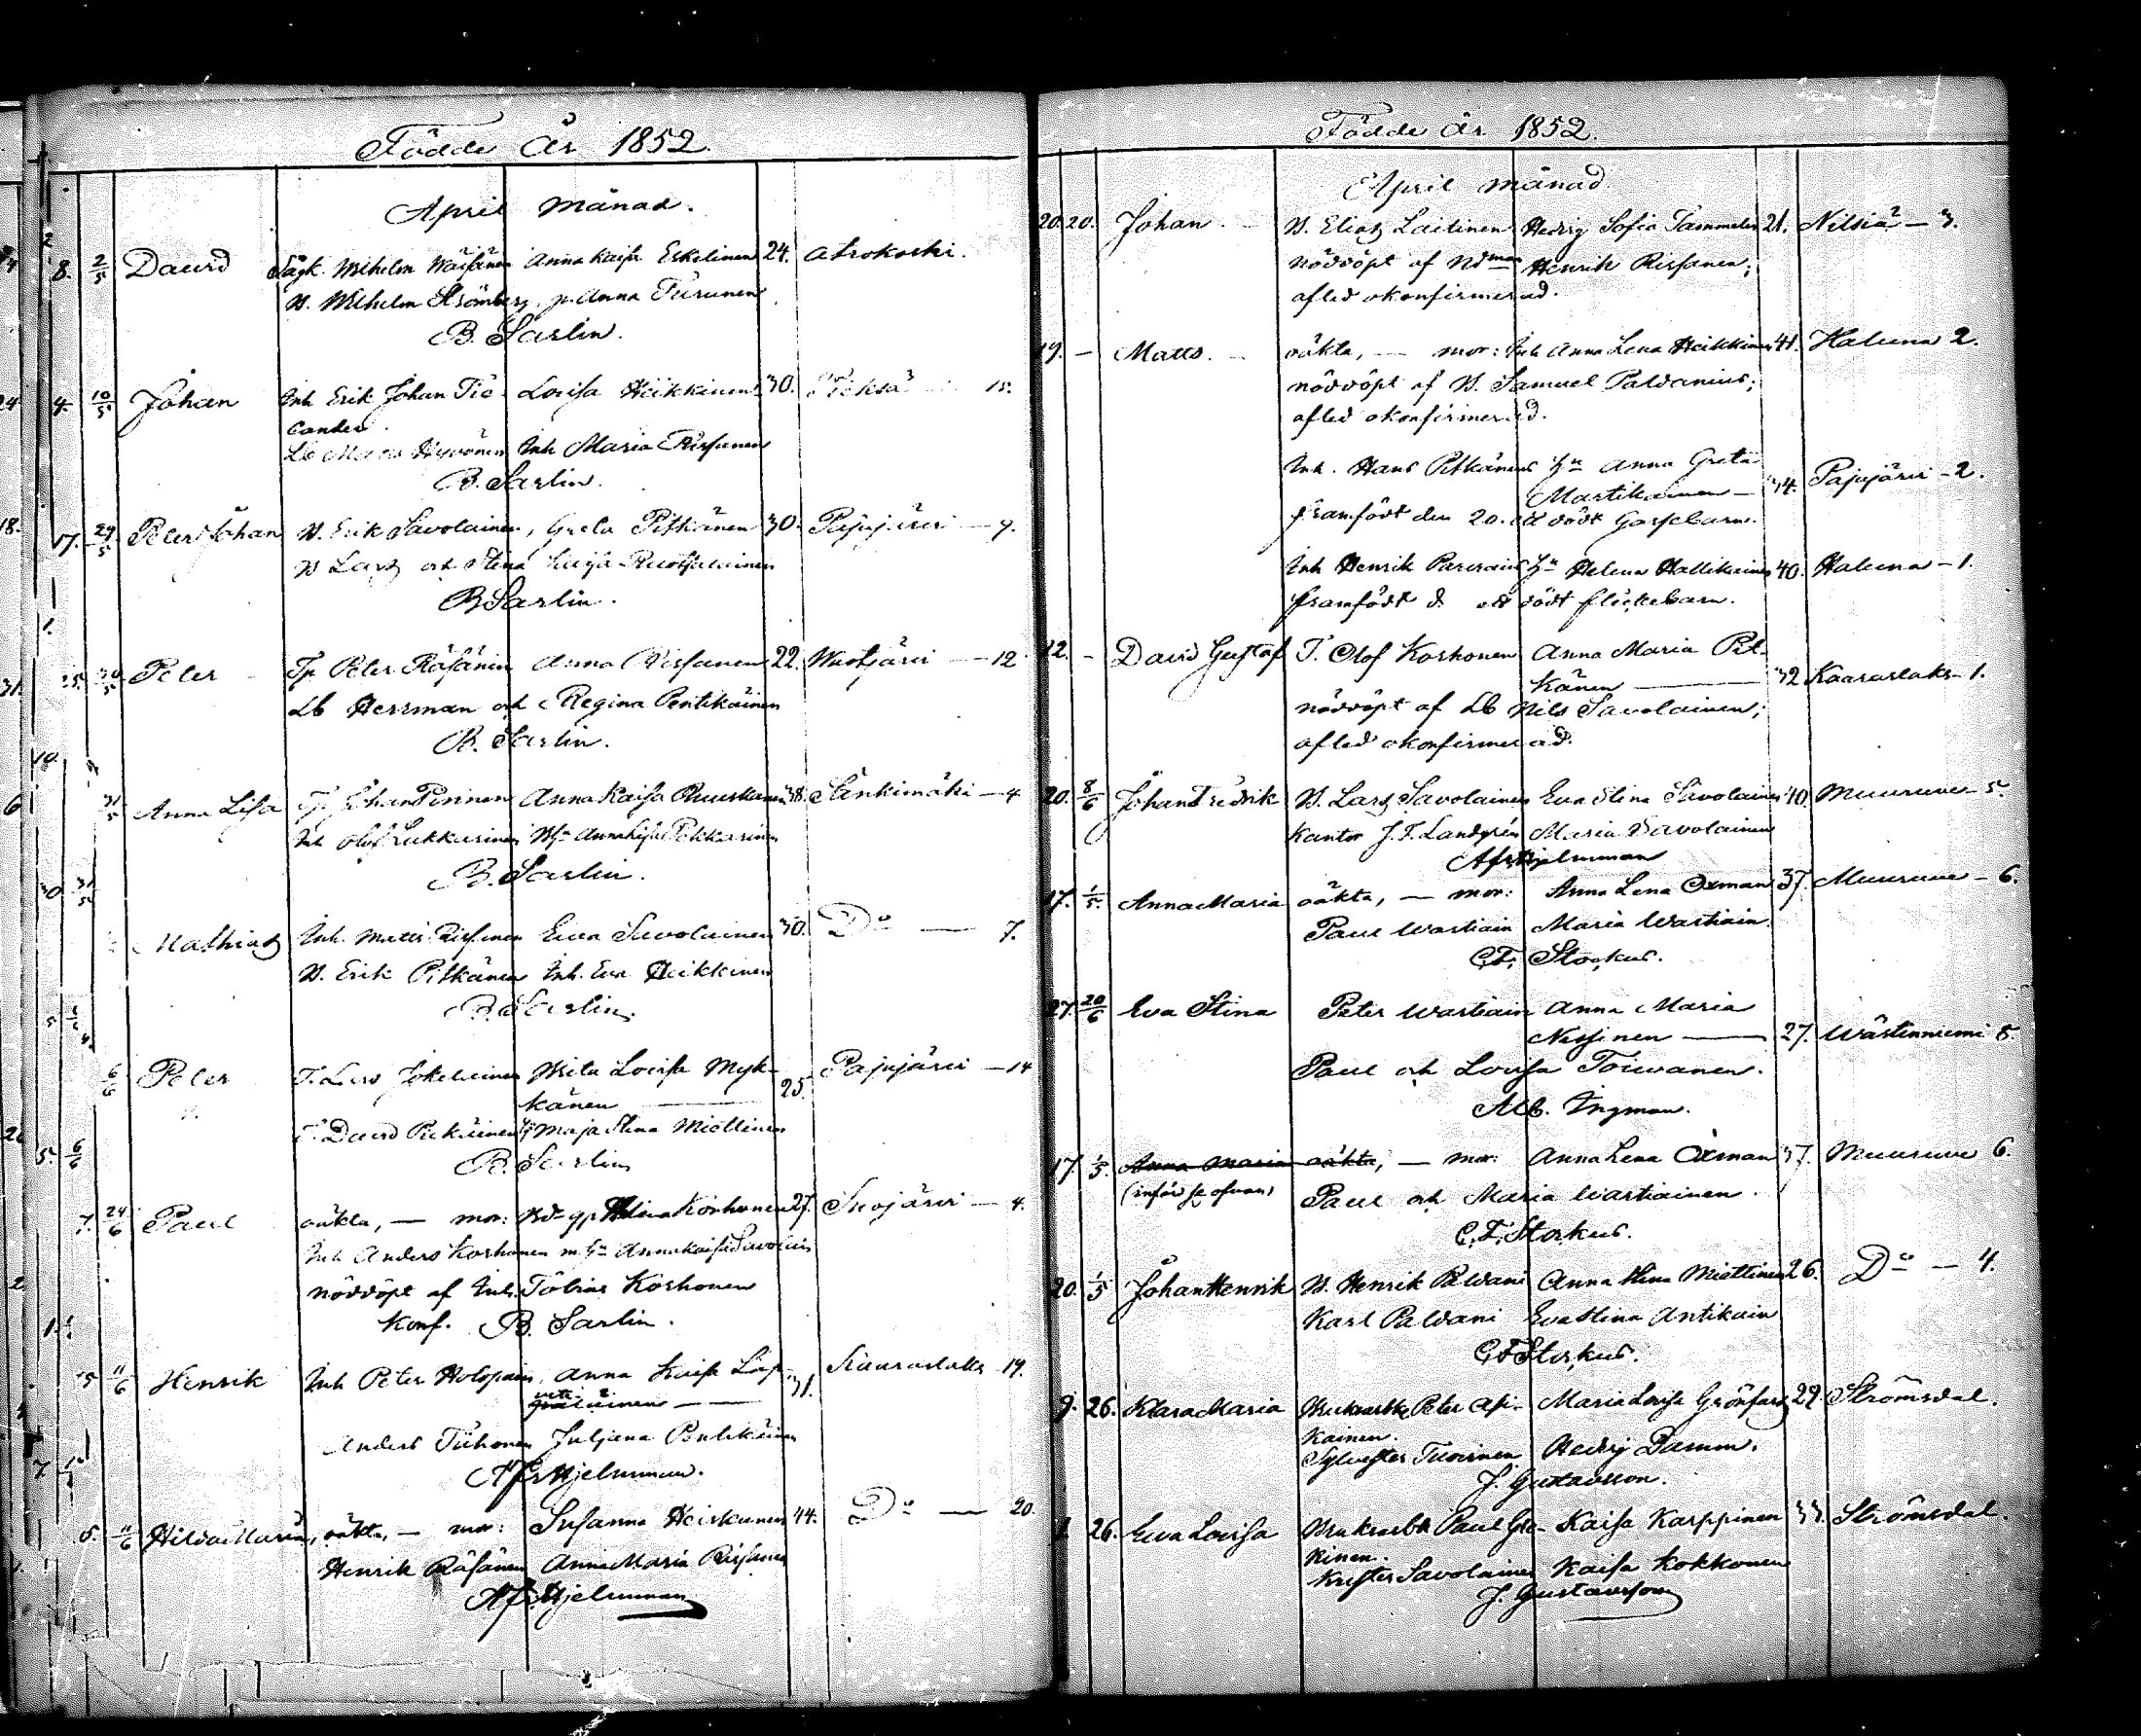 Födde År 1852.
April månad.
8. 2/5 David Sågk. Wilhelm Wäisänen Anna Kaisa Eskelinen 24. Atrokoski.
D. Wilhelm Strömberg, p. Anna Turunen
B. Sarlin.
4. 10/5 Johan Inh Erik Johan Tic- Lovisa Heikkinen 30. 15.
cander
Lb Hyvönen Inh Maria Risfanen
B. Sarlin.
17. 29/5 Peter Johan D. Erik Savolainen, Greta Pitkänen 30. Pajujärvi — 9.
D Lars och Stina Kaija Ruotsalainen
B Sarlin.
Peter Tp Peter Räsänen Anna Risfanen 22. Wuotjärvi — 12
Lb Herrman och Regina Pentikäinen
B. Sarlin.
31/5 Anna Lisa Tp Johan Pirinen Anna Kaisa Ruuskanen 38. Sänkimäki — 4
Inh Olof Lukkarinen Anna Lisa Pekkarinen
B. Sarlin.
Mathias Inh. Matts Risfanen Eva Savolainen 30. Do — 7.
D. Erik Pitkänen Inh. Eva Heikkinen
B. Sarlin.
6/6 Peter T. Lars Jokelainen Brita Lovisa Myk- Pajujärvi — 14
känen — 25.
T. David Maja Stina Miettinen
B. Sarlin
7. 24/6 Paul oäkta, — mor: Helena Korhonen 27. Suojärvi — 4.
Inh Anders Korhonen m. hu Anna Kaisa Savolain
nöddöpt af Inh. Tobias Korhonen
konf. B. Sarlin.
15 11/6 Henrik Inh Peter Holopain, Anna Kaisa Lap- Kaaraslaks 19.
veteläinen — 31.
Anders Tiihonen Juljana Pentikäinen
A. F. Hjelmman.
5. 11/6 Hilda Maria, oäkta, — mor: Susanna Heiskanen 44. Do — 20.
Henrik Räsänen Anna Maria Risfanen
A. F. Hjelmman
Födde År 1852.
April månad
20. 20. Johan — D. Elias Laitinen Hedvig Sofia Tammelin 21. Nilsiä — 3.
nöddöpt af Ndman Henrik Risfanen;
afled okonfirmerad.
19. — Matts. — oäkta, — mor: Inh Anna Lena Heikkinen 41. Haluna 2.
nöddöpt af D. Samuel Paldanius;
afled okonfirmerad.
Inh. Hans Pitkänens hu Anna Greta
Martikainen — 34. Pajujärvi — 2.
framfödt den 20. ett dödt gossebarn.
Inh Henrik hu Helena Hallikainen 40. Haluna — 1.
framfödt d. ett dödt flickebarn.
12. — David Gustaf T. Olof Korhonen Anna Maria Pit-
känen — 32 Kaaraslaks — 1.
nöddöpt af Lb Nils Savolainen;
afled okonfirmerad.
20. 8/6 Johan Fredrik D. Lars Savolainen Eva Stina Savolainen 40. Muuruvesi 5.
Kantor J. F. Landgrén Maria Savolainen
A. F. Hjelmman
17. 1/5. Anna Maria oäkta, — mor: Anna Lena Oxman 37. Muuruve — 6.
Paul Wartiain Maria Wartiain.
C. F. Storkus.
27. 20/6 Eva Stina Peter Wartiain Anna Maria
Nissinen — 27. Wästinniemi 5.
Paul och Lovisa Toivanen.
Alb. Ingman.
17. 1/5 Anna Maria oäkta, — mor: Anna Lena Oxman 37. Muuruve 6.
(införd se ofvan) Paul och Maria Wartiainen.
C. F. Storkus.
20. 1/5 Johan Henrik D. Henrik Paldani Anna Stina Miettinen 26. Do — 4.
Karl Paldani Eva Stina Antikain
C F Storkus.
9. 26. Klara Maria Bruksarb. Peter Asi- Maria Lovisa Grönfars 29. Strömsdal.
kainen.
Sylvester Tuovinen Hedvig Damm.
J. Gustavsson.
26. Eva Lovisa Bruksarb Paul Kaisa Karppinen 33. Strömsdal.
kinen.
Krister Savolainen Kaisa Kokkonen
J. Gustavsson